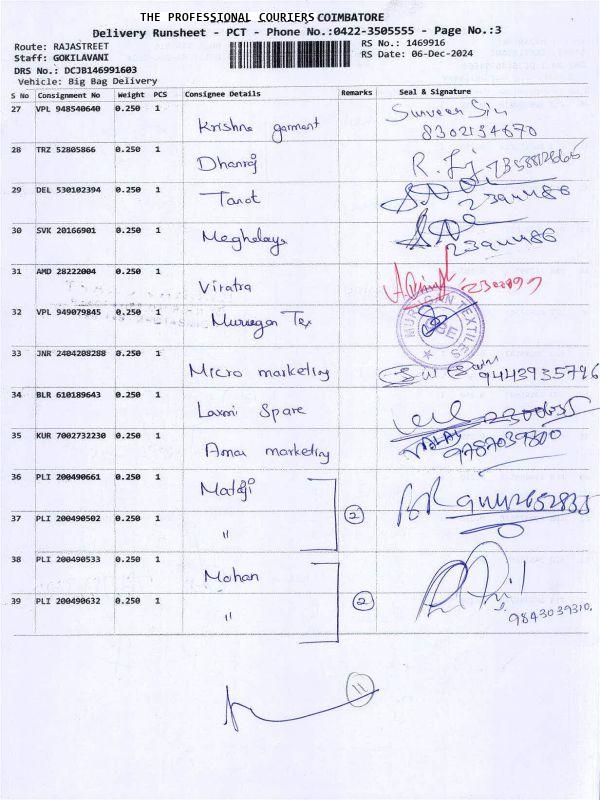 THE PROFESSIONAL COURIERS COIMBATORE
Delivery Runsheet - PCT - Phone No.:0422-3505555 - Page No.:3
Route: RAJASTREET
RS No.: 1469916
Staff: GOKILAVANI
RS Date: 06-Dec-2024
DRS No.: DCJB146991603
Vehicle: Big Bag Delivery
S No Consignment No Weight PCS Consignee Details Remarks Seal & Signature
27 VPL 948540640 0.250 1 Krishna garment
8302134670
28 TRZ 52805866 0.250 1 Dhanraj
29 DEL 530102394 0.250 1 Tarot
2394486
30 SVK 20166901 0.250 1 Meghalaya
2394486
31 AMD 28222004 0.250 1 Viratra
32 VPL 949079845 0.250 1 Murugan Tex
MURUGAN TEXTILES
CBE
33 JNR 2404208288 0.250 1 Micro marketing
9443935796
34 BLR 610189643 0.250 1 Laxmi Spare
2300635
35 KUR 7002732230 0.250 1 Amar marketing
9787039800
36 PLI 200490661 0.250 1 Mataji
2
37 PLI 200490502 0.250 1 "
38 PLI 200490533 0.250 1 Mohan
2
39 PLI 200490632 0.250 1 "
9843039310
11